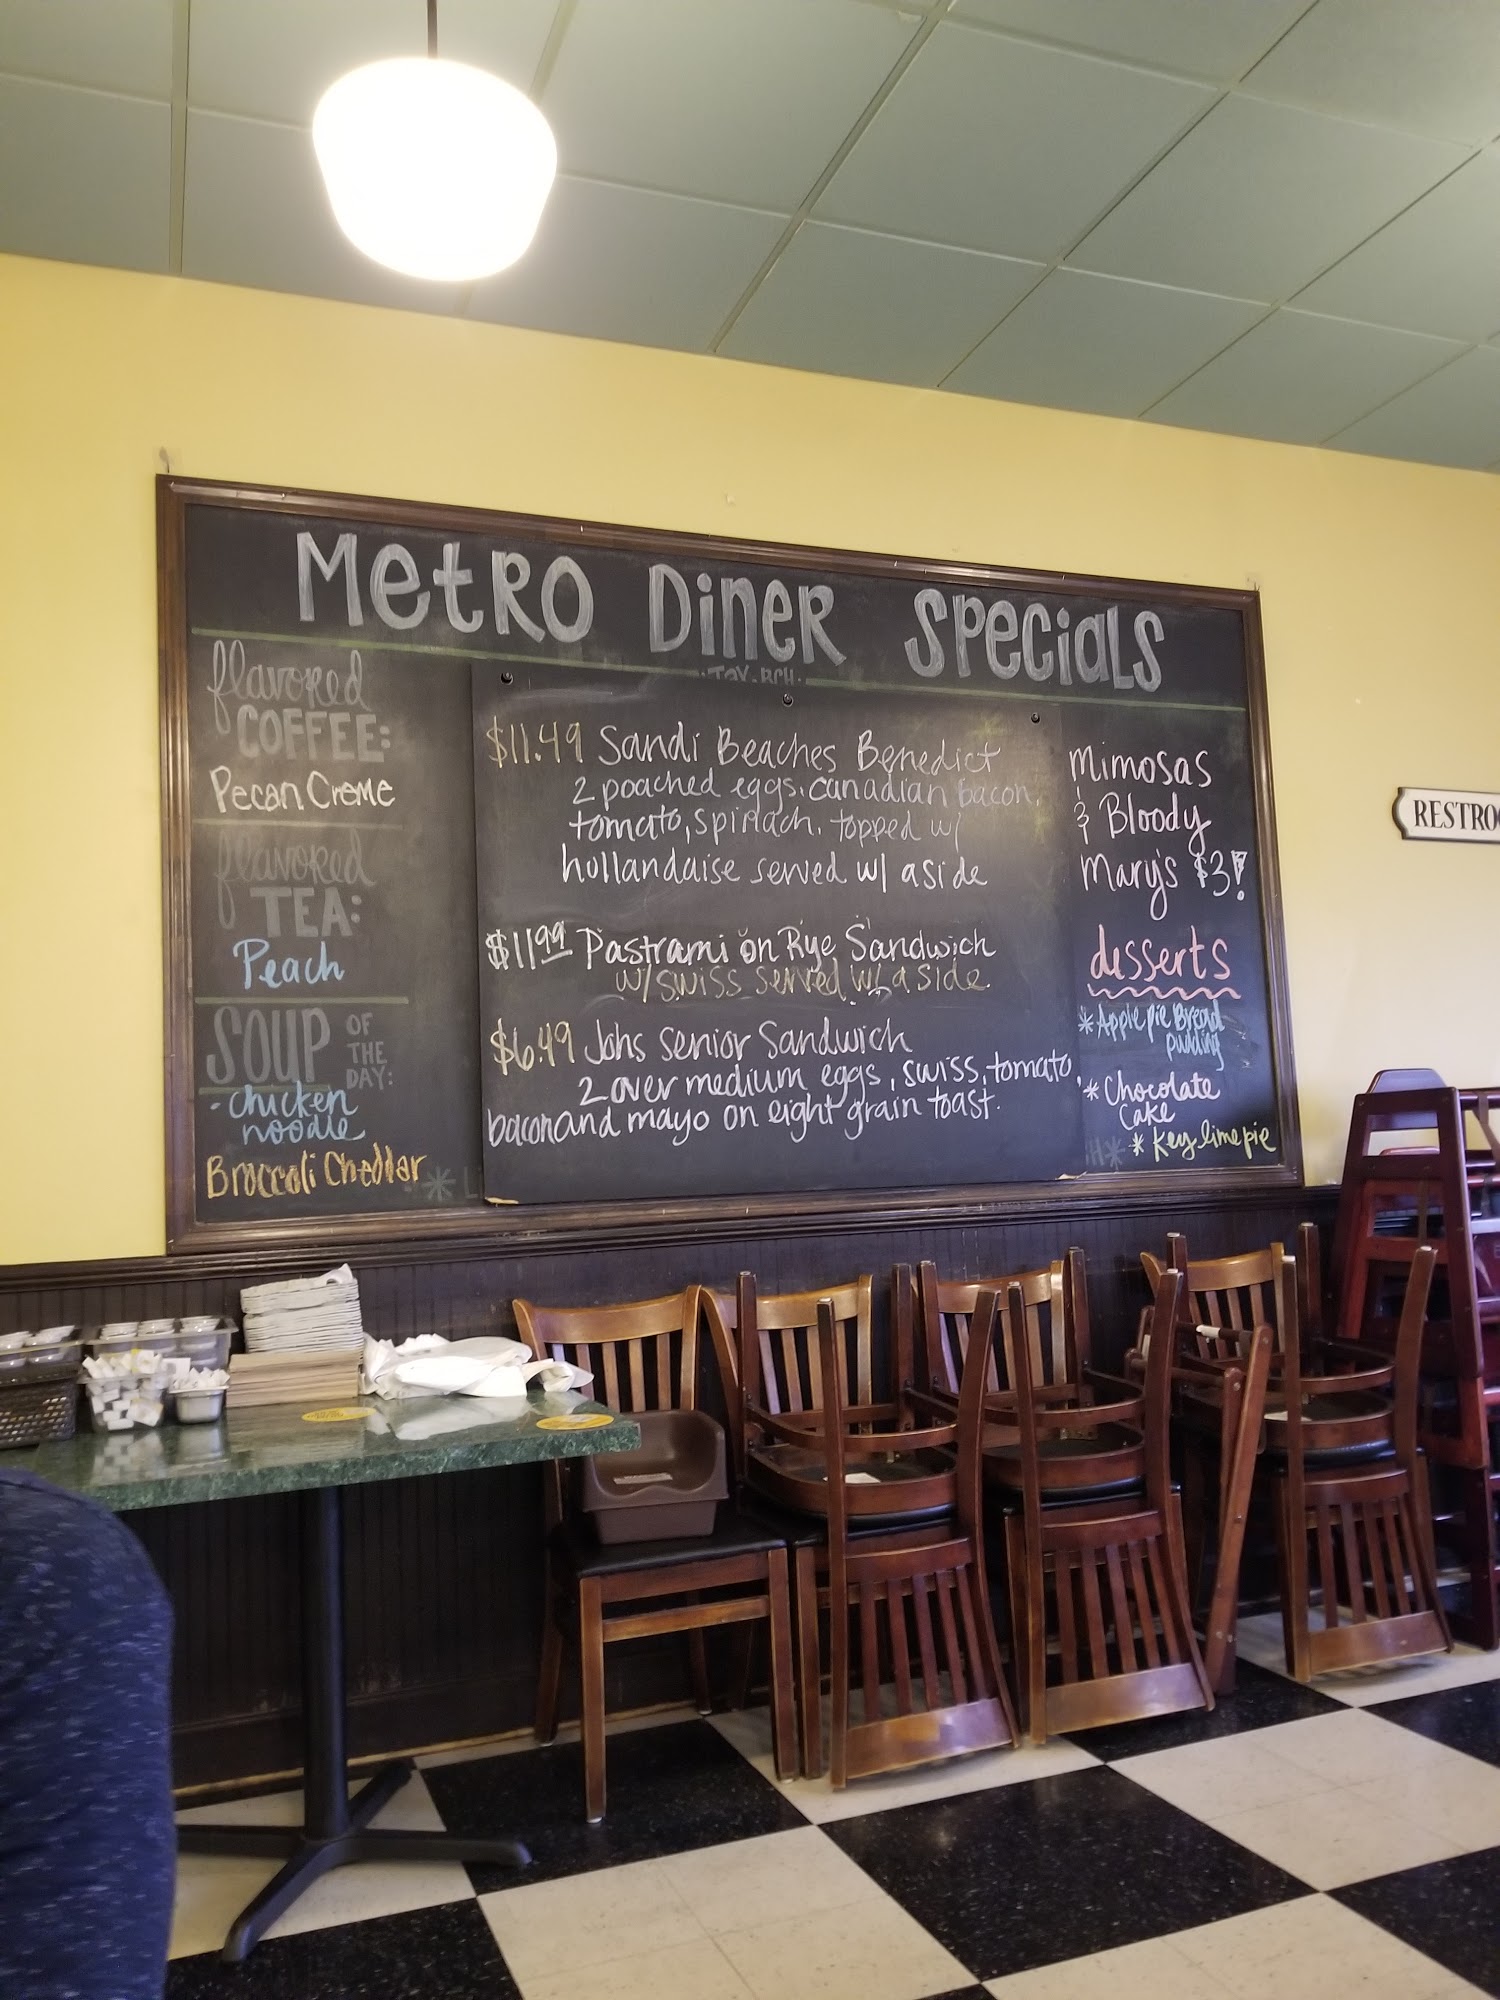 Metro Diner Specials
·JAX·BCH·
flavored
COFFEE:
Pecan Creme
flavored
TEA:
Peach
SOUP OF
THE
DAY:
- chicken
noodle
Broccoli Cheddar
$11.49 Sandi Beaches Benedict
2 poached eggs, canadian bacon,
tomato, spinach, topped w/
hollandaise served w/ a side
$11.99 Pastrami on Rye Sandwich
w/ swiss served w/ a side.
$6.49 Johs Senior Sandwich
2 over medium eggs, swiss, tomato,
bacon and mayo on eight grain toast.
Mimosas
& Bloody
Mary's $3!
desserts
* Apple pie Bread
pudding
* Chocolate
Cake
* Key lime pie